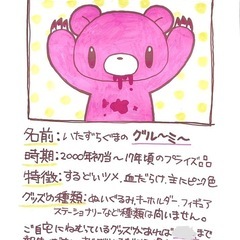 名前：いたずらぐまのグル〜ミ〜
時期：2000年初当〜17年頃のプライズ品
特徴：するどいツメ、血だらけ、主にピンク色
グッズの種類：ぬいぐるみ、キーホルダー、フィギュア
ステーショナリーなど種類は問いません。
ご自宅にねむっているグッズがあれば